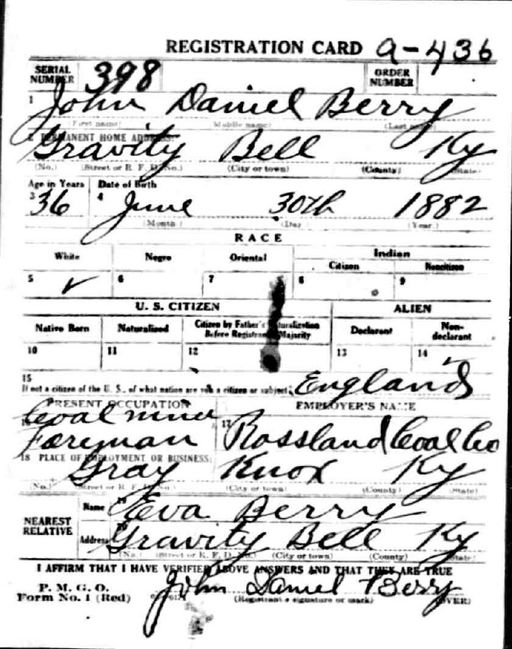 REGISTRATION CARD a-436
SERIAL NUMBER 398 ORDER NUMBER
1 John Daniel Berry
(First name) (Middle name) (Last name)
2 PERMANENT HOME ADDRESS
Gravity Bell Ky
(No.) (Street or R. F. D. No.) (City or town) (County) (State)
Age in Years Date of Birth
3 36 4 June 30th 1882
(Month) (Day) (Year)
RACE
White Negro Oriental Indian
Citizen Noncitizen
5 ✓ 6 7 8 9
U. S. CITIZEN ALIEN
Native Born Naturalized Citizen by Father's Naturalization Before Registrant's Majority Declarant Non-declarant
10 11 12 13 14 ✓
15
If not a citizen of the U. S., of what nation are you a citizen or subject? England
PRESENT OCCUPATION EMPLOYER'S NAME
Coal mine
Foreman 17 Rossland Coal Co
18 PLACE OF EMPLOYMENT OR BUSINESS:
Gray Knox Ky
(No.) (Street or R. F. D. No.) (City or town) (County) (State)
NEAREST RELATIVE Name 19 Eva Berry
Address Gravity Bell Ky
(No.) (Street or R. F. D. No.) (City or town) (County) (State)
I AFFIRM THAT I HAVE VERIFIED ABOVE ANSWERS AND THAT THEY ARE TRUE
P. M. G. O.
Form No. 1 (Red) John Daniel Berry
(Registrant's signature or mark) (OVER)